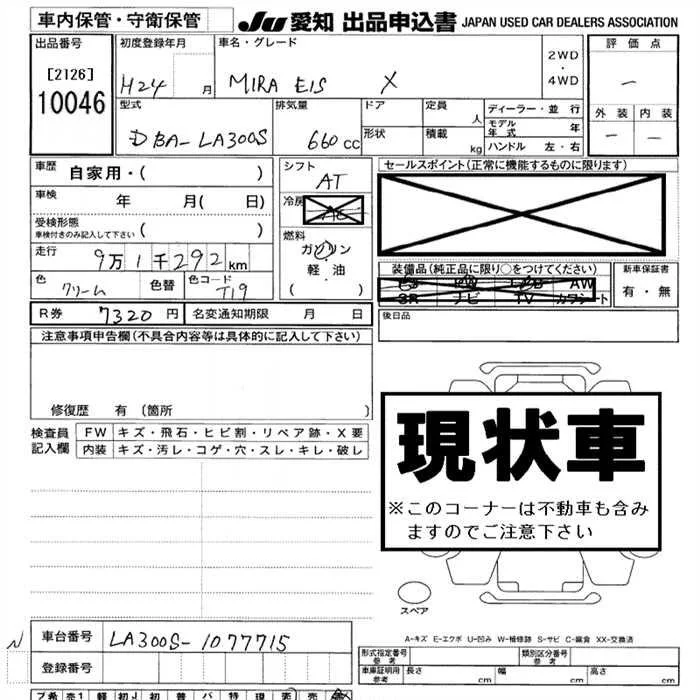 車内保管・守衛保管 JU 愛知 出品申込書 JAPAN USED CAR DEALERS ASSOCIATION
出品番号 初度登録年月 車名・グレード 2WD ・ 4WD 評価点
[2126] H24 月 MIRA EIS X ー
10046 型式 排気量 ドア 定員 人 ディーラー・並行 外装 内装
DBA-LA300S 660 cc 形状 積載 kg モデル年式 年 ー ー
ハンドル 左・右
車歴 自家用・( ) シフト AT セールスポイント(正常に機能するものに限ります)
車検 年 月( 日) 冷房 AC
受検形態 車検付きのみ記入して下さい ( ) 燃料
走行 9万1千292km ガソリン
軽・油 装備品(純正品に限り○をつけてください) 新車保証書
色 クリーム 色替 色コード T19 ( ) AW 有・無
SR ナビ TV カワシート
R券 7320円 名変通知期限 月 日 後日品
注意事項申告欄(不具合内容等は具体的に記入して下さい)
修復歴 有 [箇所 ]
検査員記入欄 FW キズ・飛石・ヒビ割・リペア跡・X要
内装 キズ・汚レ・コゲ・穴・スレ・キレ・破レ
現状車
※このコーナーは不動車も含み
ますのでご注意下さい
スペア
A-キズ E-エクボ U-凹み W-補修跡 S-サビ C-腐食 XX-交換済
N 車台番号 LA300S-1077715
登録番号
形式指定番号 参考 類別区分番号 参考
車庫証明用 参考 長さ cm 幅 cm 高さ cm